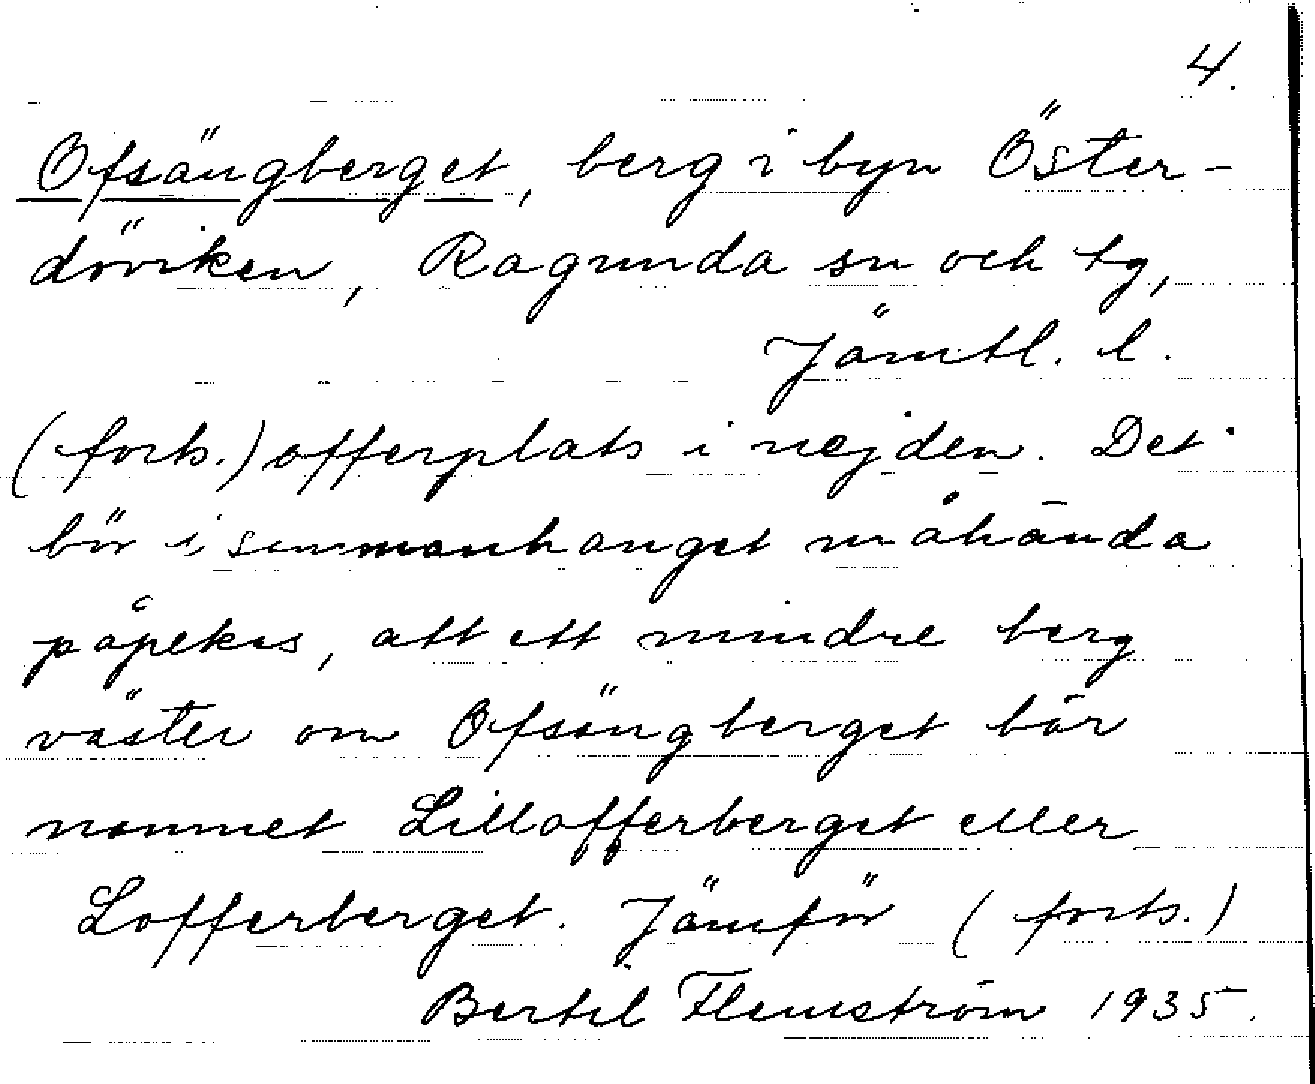 4.
Ofsängberget, berg i byn Öster-
döviken, Ragunda sn och tg,
Jämtl. l.
(forts.) offerplats i nejden. Det
bör i sammanhanget måhända
påpekas, att ett mindre berg
väster om Ofsängberget bär
namnet Lillofferberget eller
Lofferberget. Jämför (forts.)
Bertil Flemström 1935.